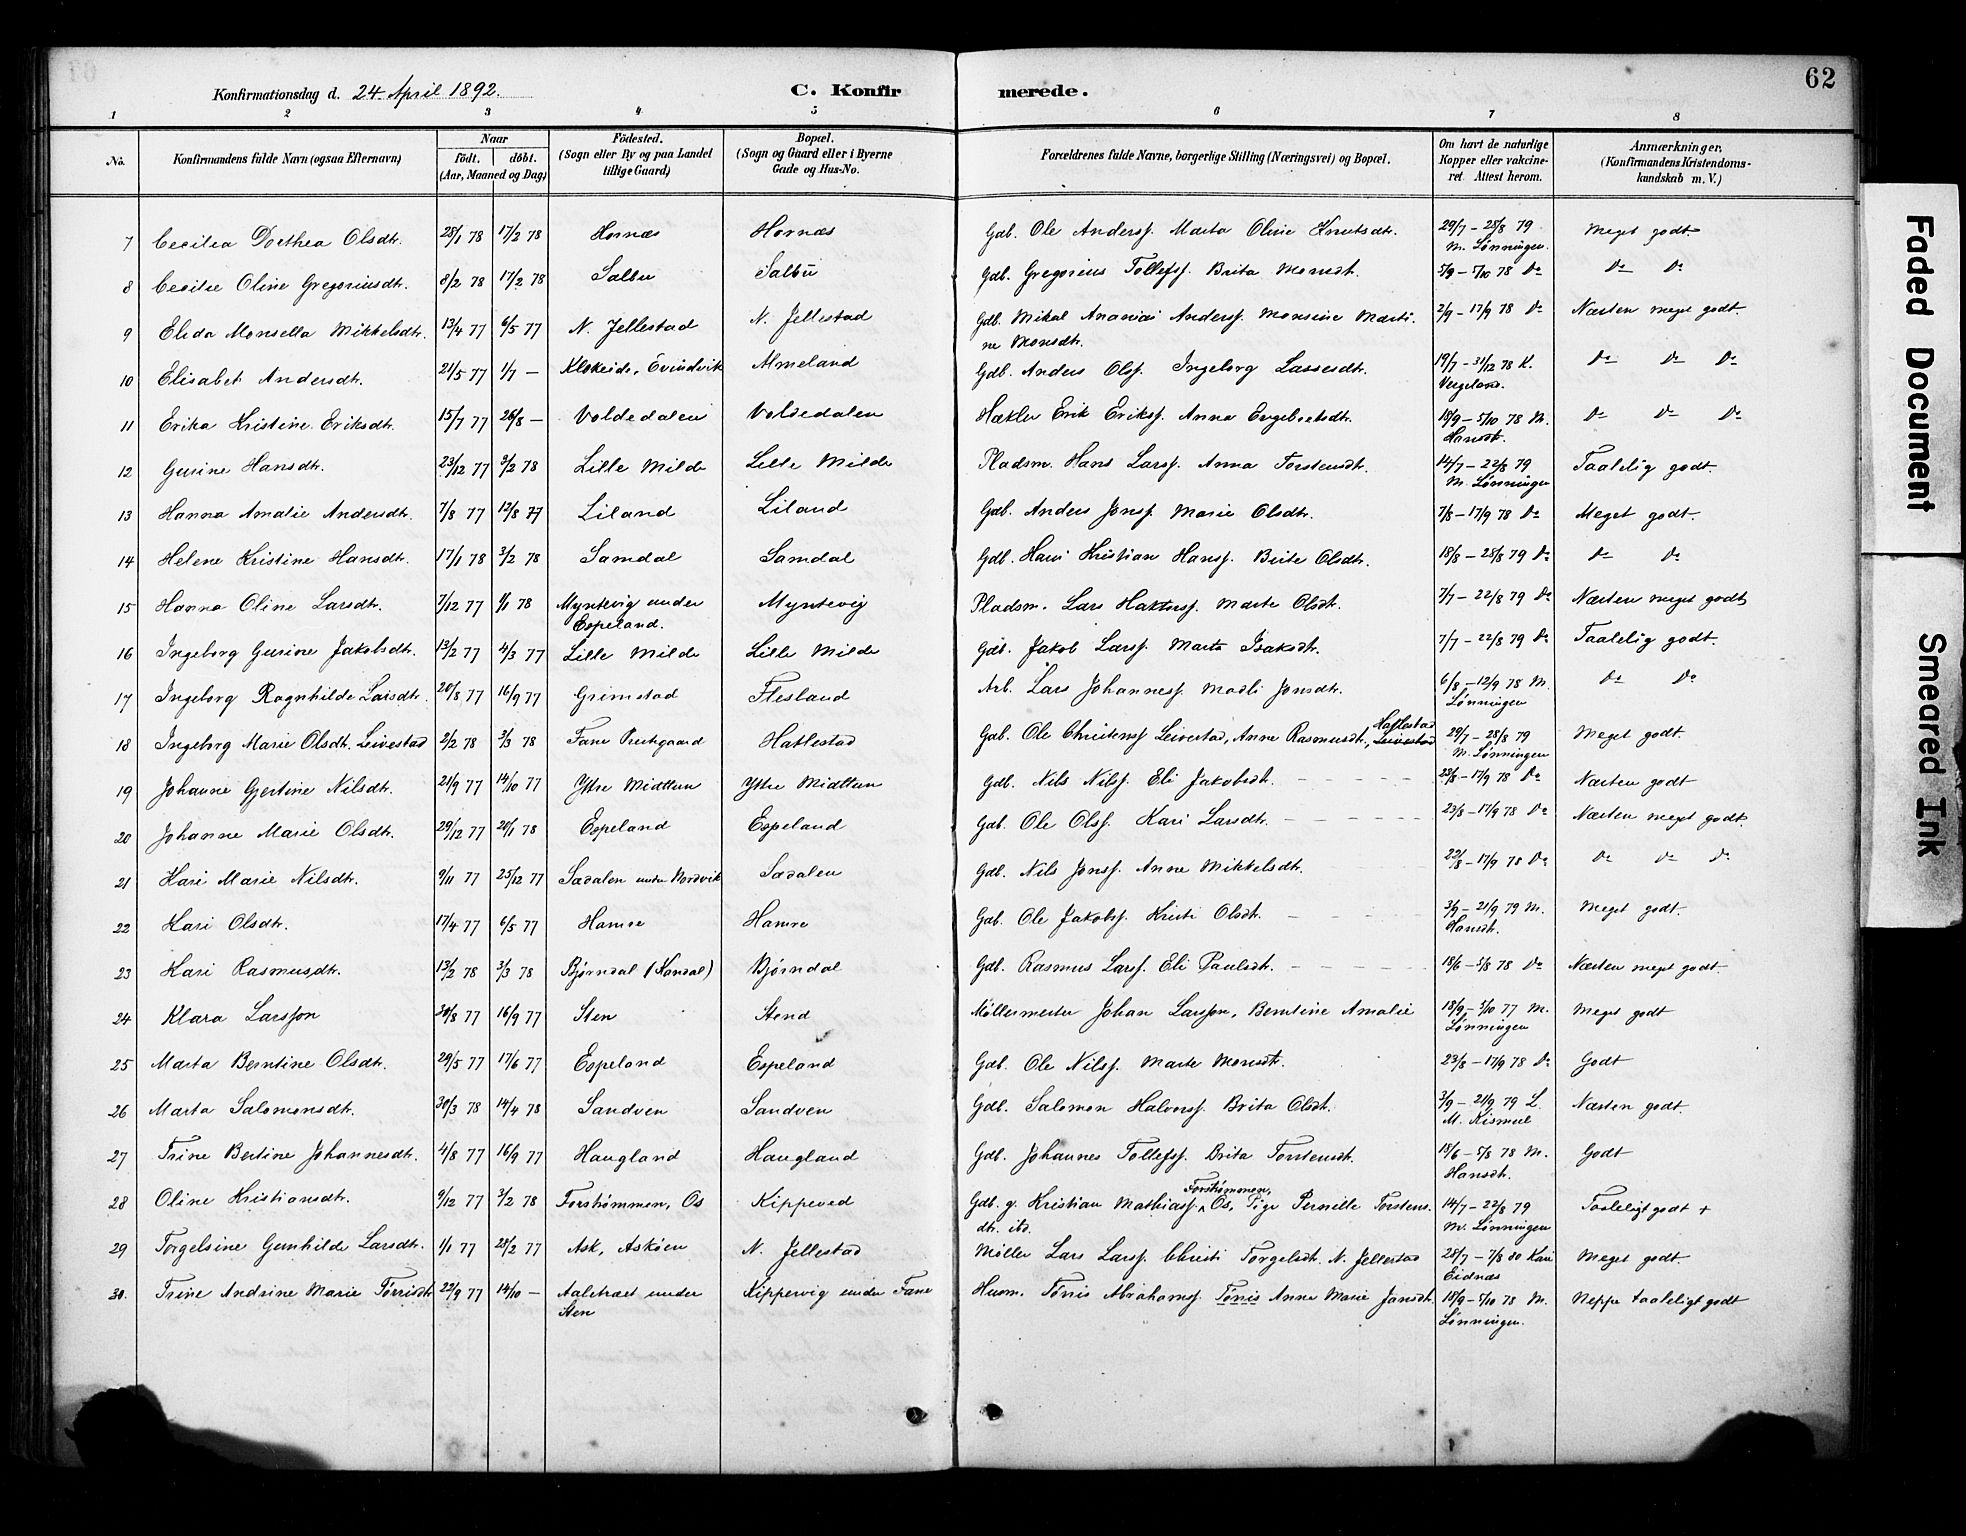 62
Konfirmationsdag d. 24. April 1892.
C. Konfir merede.
1 2 3 4 5 6 7 8
No. Konfirmandens fulde Navn (ogsaa Efternavn) Naar födt. döbt. (Aar, Maaned og Dag) Födested. (Sogn eller By og paa Landet tillige Gaard) Bopæl. (Sogn og Gaard eller i Byerne Gade og Hus-No. Forældrenes fulde Navne, borgerlige Stilling (Næringsvei) og Bopæl. Om havt de naturlige Kopper eller vakcineret. Attest herom. Anmærkninger. (Konfirmandens Kristendomskundskab m. V.)
7 Cecilia Dorthea Olsdtr. 28/1 78 17/2 78 Hornæs Hornæs Gdb. Ole Anderss. Marta Oline Knutsdtr. 29/7 - 28/8 79 M. Lønningen. Meget godt.
8 Cecilie Oline Gregoriusdtr. 8/2 78 17/2 78 Salbu Salbu Gdb. Gregorius Tollefss. Brita Monsdt. 5/9 - 5/10 78 Do Do Do
9 Elida Monsella Mikkelsdtr. 13/4 77 6/5 77 N. Jellestad N. Jellestad Gdb. Mikal Ananias Anderss. Monsine Marti-
ne Monsdtr. 2/9 - 17/9 78 Do Næsten meget godt.
10 Elisabet Andersdtr. 21/5 77 1/7 — Klokeide, Evindvik Almeland Gdb. Anders Olss. Ingeborg Lassesdtr. 19/7 - 31/12 78 K. Vergeland. Do Do Do
11 Erika Kristine Eriksdtr. 15/7 77 26/8 — Voldedalen Voldedalen Hækler Erik Erikss. Anna Engebretsdtr. 18/9 - 5/10 78 M. Hansdt. Do Do Do
12 Gurine Hansdtr. 23/12 77 3/2 78 Lille Milde Lille Milde Pladsm. Hans Larss. Anna Torstensdtr. 14/7 - 22/8 79 M. Lønningen Taalelig godt.
13 Hanna Amalie Andersdtr. 7/8 77 12/8 77 Liland Liland Gdb. Anders Jonss. Marie Olsdtr. 7/8 - 17/9 78 Do Meget godt.
14 Helene Kristine Hansdtr. 17/1 78 3/2 78 Samdal Samdal Gdb. Hans Kristian Hanss. Brite Olsdtr. 18/8 - 28/8 79 Do Do Do
15 Hanna Oline Larsdtr. 7/12 77 1/1 78 Myntevig under Espeland. Myntevig Pladsm. Lars Haktorss. Marte Olsdt. 7/7 - 22/8 79 Do Næsten meget godt
16 Ingeborg Gurine Jakobsdtr. 13/2 77 4/3 77 Lille Milde Lille Milde Gdb. Jakob Larss. Marta Isaksdtr. 7/7 - 22/8 79 Do Taalelig godt.
17 Ingeborg Ragnhilde Larsdtr. 20/8 77 16/9 77 Grimstad Flesland Arb. Lars Johanness. Madli Jonsdtr. 6/8 - 12/9 78 M. Lønningen Do Do
18 Ingeborg Marie Olsdt. Leivestad 2/2 78 3/3 78 Fane Prestgaard Hatlestad Gdb. Ole Christenss. Leivestad, Anne Rasmusdt., Hatlestad Leivestad 29/7 - 28/8 79 M. Lønningen Meget godt.
19 Johanne Gjertine Nilsdtr. 21/9 77 14/10 77 Ytre Midttun Ytre Midttun Gdb. Nils Nilss. Eli Jakobsdt. 23/8 - 17/9 78 Do Næsten godt
20 Johanne Marie Olsdtr. 29/12 77 20/1 78 Espeland Espeland Gdb. Ole Olss. Kari Larsdtr. 23/8 - 17/9 78 Do Næsten meget godt.
21 Kari Marie Nilsdtr. 9/11 77 25/12 77 Sædalen under Nordvik Sædalen Gdb. Nils Jonss. Anne Mikkelsdtr. 22/8 - 17/9 78 Do Do Do Do
22 Kari Olsdtr. 17/4 77 6/5 77 Hamre Hamre Gdb. Ole Jakobss. Kristi Olsdt. 3/9 - 21/9 79 M. Hansdt. Meget godt.
23 Kari Rasmusdtr. 13/2 78 3/3 78 Bjørndal (Kandal) Bjørndal Gdb. Rasmus Larss. Eli Paulsdt. 18/6 - 5/8 78 Do Næsten meget godt.
24 Klara Larsson 30/8 77 16/9 77 Sten Stend Møllermester Johan Larsson, Berntine Amalie 18/9 - 5/10 77 M. Lønningen Meget godt
25 Marta Berntine Olsdtr. 29/5 77 17/6 77 Espeland Espeland Gdb. Ole Nilss. Marte Monsdt. 23/8 - 17/9 78 Do Godt
26 Marta Salomonsdtr. 30/3 78 14/4 78 Sandven Sandven Gdb. Salomon Halvorss. Brita Olsdt. 3/9 - 21/9 79 L. M. Kismul Næsten godt.
27 Trine Bertine Johannesdtr. 4/8 77 16/9 77 Haugland Haugland Gdb. Johannes Tollefss. Brita Torstensdtr. 18/6 - 5/8 78 M. Hansdt. Godt
28 Oline Kristiansdtr. 9/12 77 3/2 78 Forstrømmen, Os Kippeved Gdb. g. Kristian Mathiass. Forstrømmen, Os, Pige Pernille Torstens-
dtr. ibd. 14/7 - 22/8 79 M. Lønningen Taaleligt godt +
29 Torgelsine Gunhilde Larsdtr. 1/1 77 28/2 77 Ask, Askøen N. Jellestad Møller Lars Larss. Christi Torgelsdt. N. Jellestad 28/7 - 7/8 80 Kari Eidnæs Meget godt.
30. Trine Andrine Marie Tørrisdtr. 22/9 77 14/10 — Aaletræet under Sten Kippervig under Fane Husm. Tørris Abrahamss. Tørris Anne Marie Jansdtr. 18/9 - 5/10 78 M. Lønningen. Neppe taaleligt godt
Faded Document
Smeared Ink